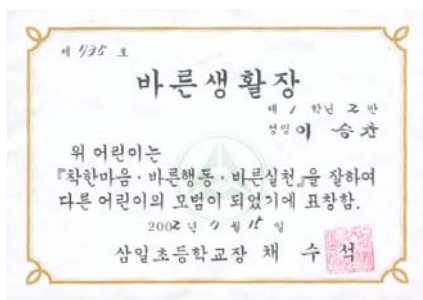 제 735 호
바른생활장
제 1 학년 2 반
성명 이 승
위 어린이는
『착한마음 · 바른행동 · 바른실천』을 잘하여
다른 어린이의 모범이 되었기에 표창함.
2002 년 11 월 15 일
삼일초등학교장 채 수 석